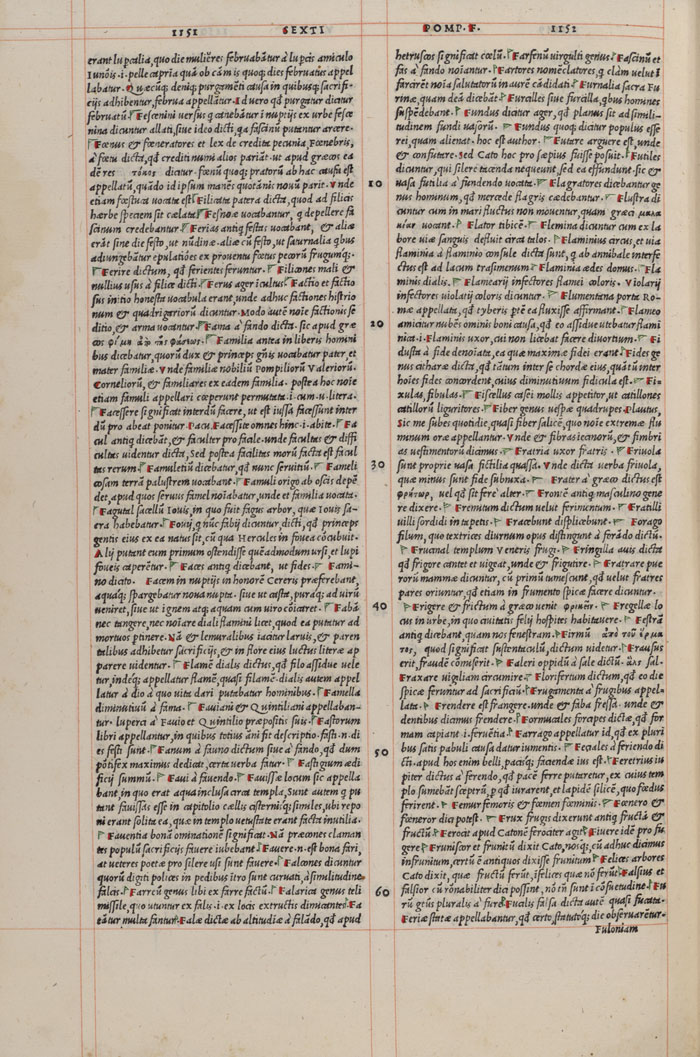 1151 SEXTI
POMP. F. 1152
erant lupcalia, quo die mulieres februabātur à lupcis amiculo
Iunōis .i. pelle caprīa quā ob cām is quoq; dies februatus appel
labatur. Quæcūq; deniq; purgamēti causa in quibusq; sacrifi-
cijs adhibentur, februa appellātur. Id uero qd purgatur dicitur
februatū Fescēnini uersus q canebātur ī nuptijs ex urbe fesce
nina dicuntur allati, siue ideo dicti, qa fascinū putantur arcere.
Fœnus & fœneratores et lex de credita pecunia Fœnebris,
à fœtu dicta, qd crediti numi alios pariāt. ut apud græcos ea
dē res τόκος dicitur. fœnū quoq; pratorū ab hac causa est
appellatū, quādo id ipsum manēs quotānis nouū parit. Vnde
etiam fœstuca uocata est Filicata patera dicta, quod ad filicis
hærbæ speciem sit cælata Fesnoæ uocabantur, q depellere fa
scinum credebantur Ferias antiq festas uocabant, & aliæ
erāt sine die festo, ut nūdinæ. aliæ cū festo, ut saturnalia qbus
adiungebātur epulatiões ex prouentu fœtus pecorū frugumq;.
Ferire dictum, qd ferientes feruntur. Filicones mali &
nullius usus à filice dicti. Ferus ager icultus. Factio et factio
sus initio honesta uocabula erant, unde adhuc factiones histrio
num & quadrigariorū dicuntur. Modo autē noīe factionis se
ditio, & arma uocantur. Fama à fando dicta. sic apud græ
cos
Familia antea in liberis homini
bus dicebatur, quorū dux & princeps gñis uocabatur pater, et
mater familiæ. Vnde familia nobiliū Pompiliorū Valeriorū.
Corneliorū, & familiares ex eadem familia. postea hoc noīe
etiam famuli appellari cœperunt permutata .i. cum .u. litera.
Facessere significat interdū facere, ut est iussa facessunt inter
dū pro abeat ponitur. Pacu. Facessite omnes hinc .i. abite. Fa
cul antiq dicebāt, & faculter pro facile. unde facultas & diffi
cultas uidentur dicta, Sed postea facilitas morū facta est facul
tas rerum. Famuletiū dicebatur, qd nunc seruitiū. Fameli
cosam terrā palustrem uocabant. Famuli origo ab oscis depē
det, apud quos seruus famel noīabatur, unde et familia uocata.
Fagutal sacellū Iouis, in quo fuit fagus arbor, quæ Iouis sa-
cra habebatur. Fouij, q nūc fabij dicuntur, dicti, qd princeps
gentis eius ex ea natus sit, cū qua Hercules in fouea cōcubuit.
Alij putant eum primum ostendisse quēadmodum ursi, et lupi
foueis caperētur. Faces antiq dicebant, ut fides. Fami-
no dicito. Facem in nuptijs in honorē Cereris præferebant,
aquāq; spargebatur noua nupta. siue ut casta, puraq; ad uirū
ueniret, siue ut ignem atq; aquam cum uiro cōicaret. Fabā
nec tangere, nec noīare diali flamini licet, quod ea putatur ad
mortuos ptinere. Nā & lemuralibus iacitur laruis, & paren
talibus adhibetur sacrificijs, & in flore eius luctus literæ ap
parere uidentur. Flamē dialis dictus, qd filo assidue uele
tur, indeq; appellatur flamē, quasi filamē. dialis autem appel
latur à dio a quo uita dari putabatur hominibus. Famella
diminutiuū à fama. Fauiani & Quintiliani appellaban-
tur. luperci a Fauio et Quintilio præpositis suis. Fastorum
libri appellantur, in quibus totius anni fit descriptio. fasti .n. di
es festi sunt Fanum à fauno dictum siue à fando, qd dum
pōtifex maximus dedicat, certa uerba fatur. Fastigium ædi
ficij summū. Faui à fouendo. Fauissæ locum sic appella
bant, in quo erat aqua inclusa circa templa. Sunt autem q pu
tant fauissas esse in capitolio cællis cisternisq; similes, ubi repo
ni erant solita ea, quæ in templo uetustate erant facta inutilia.
Fauentia bonā ominationē significat. Nā præcones claman
tes populū sacrificijs fauere iubebant. Fauere .n. est bona fari,
at ueteres poetæ pro silere usi sunt fauere. Falcones dicuntur
quorū digiti polices in pedibus itro sunt curuati, à similitudine
falcis. Farreū genus libi ex farre factū. Falarica genus teli
missile, quo utuntur ex falis .i. ex locis extructis dimicantes. Fa
cātur multa fantur. Falæ dictæ ab altitudīe à falādo, qd apud
hetruscos significat cœlū. Farfenū uirgulti genus. Fascinū et
fās à fando noīantur. Fartores nomēclatores, q clam uelut ī
farcirēt noīa salutatorū in aurē cādidati. Furnalia sacra Fu
rinæ, quam deā dicebāt. Furcilles siue furcilla, qbus homines
suspēdebant. Fundus dicitur ager, qd planus sit ad simili-
tudinem fundi uasorū. Fundus quoq; dicitur populus esse
rei, quam alienat. hoc est author. Futare arguere est, unde
& confutare. Sed Cato hoc pro sæpius fuisse posuit. Futiles
dicuntur, qui silere tacenda nequeunt, sed ea effundunt. sic &
10 uasa futilia à fundendo uocata. Flagratores dicebantur ge
nus hominum, qd mercede flagris cædebantur. Flustra di
cuntur cum in mari fluctus non mouentur, quam græci μαλα
κίαν uocant. Flator tibicē. Flemina dicuntur cum ex la
bore uiæ sanguis defluit circa talos. Flaminius circus, et uia
flaminia à flaminio consule dicta sunt, q ab annibale interfe
ctus est ad lacum trasimenum Flaminia ædes domus. Fla
minis dialis. Flamearij infectores flamei coloris. Violarij
infectores uiolacij coloris dicuntur. Flumentana porta Ro-
mæ appellata, qd tyberis ptē ea fluxisse affirmant. Flameo
20 amicitur nubēs ominis boni causa, qd eo assidue utebatur flami
nica .i. Flaminis uxor, cui non licebat facere diuortium. Fi
dusta à fide denoīata, ea quæ maximæ fidei erant Fides ge
nus citharæ dicta, qd tātum inter se chordæ eius, quātū inter
hoīes fides concordent, cuius diminutiuum fidicula est. Fi-
xulas, fibulas. Fiscellus casei mollis appetitor, ut catillones
catillorū liguritores. Fiber genus uestiæ quadrupes. Plautus,
Sic me subes quotidie, quasi fiber salicē, quo noīe extremæ flu
minum oræ appellantur. Vnde & fibras iecinorū, & fimbri
as uestimētorū dicimus. Fratria uxor fratris. Friuola
30 sunt proprie uasa fictilia quassa. Vnde dicta uerba friuola,
quæ minus sunt fide subnixa. Frater a græco dictus est
uel qd sit ferè alter. Frontē antiq masculino gene
re dixere. Fremitum dictum uelut ferinentum. Fratilli
uilli sordidi in tapetis. Fracebunt displicebunt. Forago
filum, quo textrices diurnum opus distingunt à forādo dictū.
Frucinal templum Veneris frugi. Fringilla auis dicta
qd frigore cantet et uigeat, unde & frigutire. Fratrare pue
rorū mammæ dicuntur, cū primū tumescunt, qd uelut fratres
pares oriuntur, qd etiam in frumento spicæ facere dicuntur.
40 Frigere & frictum à græco uenit Fregellæ lo
cus in urbe, in quo ciuitatis eius hospites habitauere. Festrā
antiq dicebant, quam nos fenestram. Firmū
quod significat sustentaculū, dictum uidetur. Frausus
erit, fraudē comiserit. Faleri oppidū à sale dictū. sal.
Fraxare uigiliam circumire. Florifertum dictum, qd eo die
spicæ feruntur ad sacrificiū. Frugamenta à frugibus appel-
lata. Frendere est frangere. unde & faba fressa. unde &
dentibus dicimus frendere. Formucales forcipes dictæ, qd for
mam capiant .i. feruētia. Farrago appellatur id, qd ex pluri
50 bus satis pabuli causa datur iumentis. Feciales à feriendo di
cti. apud hos enim belli, pacisq; faciendæ ius est. Feretrius iu
piter dictus à ferendo, qd pacē ferre putaretur, ex cuius tem
plo sumebāt sceptrū, p qd iurarent, et lapidē silicē, quo fœdus
ferirent. Femur femoris & fœmen fœminis. Fœnero &
fœneror dici potest. Frux frugis dixerunt antiq fructū &
fructū. Ferocit apud Catonē ferociter agit. Fiuere idē pro fi-
gere Fruniscor et frunitū dixit Cato, nosq; cū adhuc dicimus
infrunitum, certū ē antiquos dixisse frunitum Felices arbores
Cato dixit, quæ fructū ferūt, īfelices quæ nō ferūt. Falsius et
60 falsior cū rōnabiliter dici possint, nō tñ sunt ī cōsuetudine. Fu
rū genus pluralis à fure Fucilis falsa dicta autē quasi fucata.
Feriæ statæ appellabantur, qd certo, statutoq; die obseruarētur.
Fuloniam